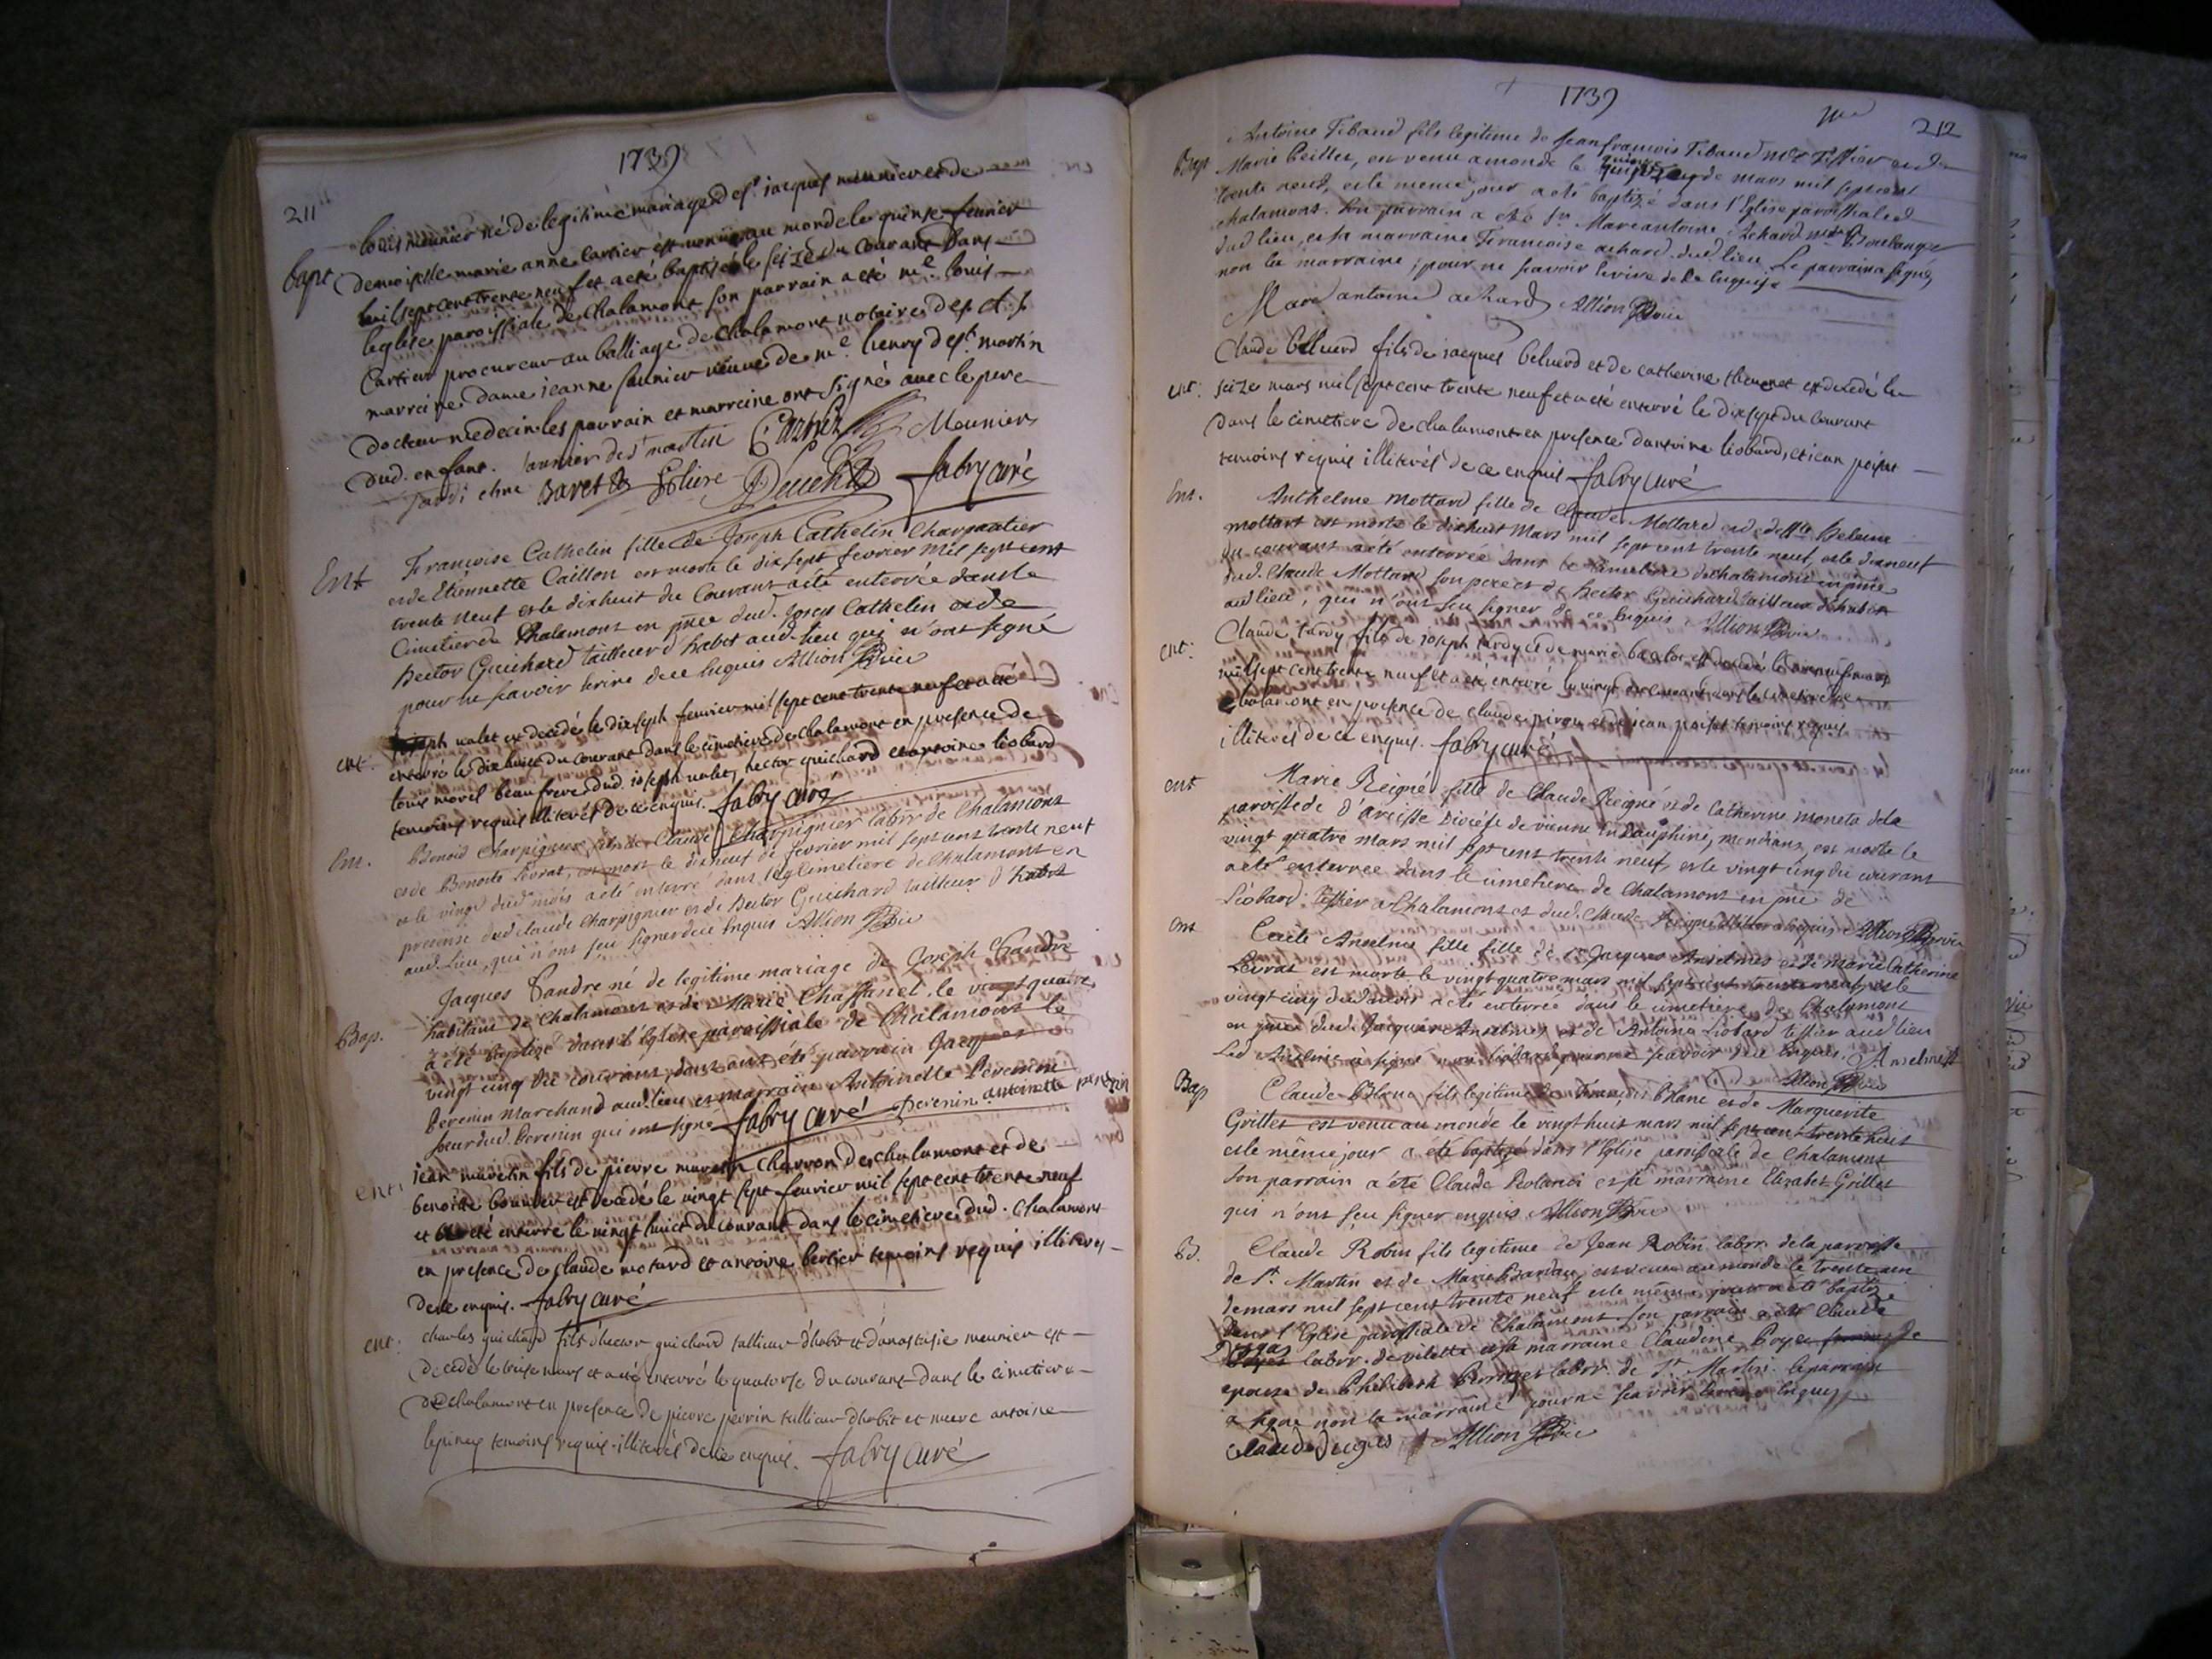 1739
211
louis meunier né de legitime mariage de sr. jacques meunier et de
bapt. demoiselle marie anne cartier est venu au monde le quinse feurier
mil sept cent trente neuf et a eté baptisé le seize du courant dans
leglise paroissiale de chalamont son parrain a eté me. louis
Cartier procureur au balliage de chalamont notaire
marreine dame jeanne saunier veuve de me. henry des st. martin
docteur medecin les parrain et marreine ont signé avec le pere
dud. enfant. saunier des martin Cartier Meunier
Baret fabry curé
Ent Francoise Cathelin fille de Joseph Cathelin Charpantier
et de Etiennette Caillon est morte le dix sept fevrier mil sept cent
trente neuf et le dixhuit du Courant a été enterrée dans le
Cimetiere de Chalamont en pnce dud. Joseph Cathelin et de
Hector Guichard tailleur d'habit aud. lieu qui n'ont signé
pour ne scavoir ecrire de ce enquis Allion Vic
ent. joseph valet est decedé le dix sept feurier mil sept cent trente neuf et a eté
enterré le dix huict du courant dans le cimetiere de chalamont en presence de
louis morel beau frere dud. joseph valet, hector guichard et antoine léobard
temoins requis illiterés de ce enquis. fabry curé
Ent. Benoid Charpignier fils de Claude Charpignier labor de Chalamont
et de Benoite Sevrat, est mort le dixneuf de fevrier mil sept cent trente neuf
et le vingt dud. mois a eté enterré dans le Cimetiere de Chalamont en
presense dud. Claude Charpignier et de Hector Guichard tailleur d'habit
aud. lieu, qui n'ont sceu signer de ce enquis Allion Vic
Jacques Tandre né de legitime mariage de Joseph Tandre
habitant de Chalamont et de Marie Chassanel, le vingt quatre
Bap. a eté Baptizé dans l'Eglise paroissiale de Chalamont le
vingt cinq du courant, dont ont été parrain Jacques
Perenin marchand aud. lieu et marraine Antoinette Perenin
soeur dud. Perenin qui ont signé fabry curé Perenin antoinette perenin
ent. jean marestin fils de pierre marestin charron de chalamont et de
benoite bouvier est decedé le vingt sept feurier mil sept cent trente neuf
et a eté enterré le vingt huict du courant dans le cimetiere dud. chalamont
en presence de claude motard et antoine berlier temoins requis illiterés
de ce enquis. fabry curé
ent. charles guichard fils d'hector guichard tallieur d'habit et d'anastasie meunier est
decedé le treise mars et a eté enterré le quatorse du courant dans le cimetiere
de chalamont en presence de pierre perrin tallieur d'habit et marc antoine
lepinay temoins requis illiterés de ce enquis. fabry curé
1739
212
Antoine Tibaud fils legitime de Jean francois Tibaud md Tissier et de
Bap Marie Peillet, est venu a monde le quinze de mars mil sept cent
trente neuf, et le meme jour a eté baptizé dans l'Eglise paroissiale de
chalamont. Son parrain a eté sr. Marc antoine Achard md Boulanger
dud lieu, et sa marraine Francoise achard dud. lieu. Le parrain a signé,
non la marraine, pour ne scavoir ecrire de ce enquise
Marc antoine achard Allion Vic
Claude Beluerd fils de jacques beluerd et de catherine thevenet est decedé le
ent. seize mars mil sept cent trente neuf et a eté enterré le dix sept du courant
dans le cimetiere de chalamont en presence d'antoine léobard, et jean poisat
temoins requis illiterés de ce enquis fabry curé
Ent. Anthelme Mottard fille de Claude Mottard et de Helene
mottart est morte le dixhuit Mars mil sept cent trente neuf, et le dixneuf
du courant a été enterrée dans le cimetiere de chalamont en pnce
dud. Claude Mottard son pere et de hector Guichard tailleur d'habit
aud lieu, qui n'ont sceu signer de ce enquis Allion Vic
ent. Claude tardy fils de joseph tardy et de marie est decedé le dix neuf mars
mil sept cent trente neuf et a eté enterré le vingt du courant dans le cimetiere de
chalamont en presence de claude pirou et jean poisat temoins requis
illiterés de ce enquis. fabry curé
ent Marie Reigné fille de Claude Reigné et de Catherine moneta de la
paroisse de d'arcisse Diocése de vienne en dauphiné, mendians, est morte le
vingt quatre mars mil sept cent trente neuf, et le vingt cinq du courant
a eté enterree dans le cimetiere de Chalamont en pnce de
Léobard tissier a Chalamont et dud. Claude Reigné illiteré enquis Allion Vic
ent Cecile Anselme fille fille de sr Jacques Anselme et de marie Catherine
Levrat est morte le vingt quatre mars mil sept cent trente neuf, et le
vingt cinq dud mois a eté enterrée dans le cimetiere de Chalamont
en pnce dud. Jacques Anselme et de Antoine Léobard tissier aud lieu
Led Anselme a signé non Léobard pour ne scavoir de ce enquis. Anselme
Allion Vic
Bap Claude Blanc fils legitime de François Blanc et de Marguerite
Grillet est venu au monde le vingt huit mars mil sept cent trente huit
et le même jour a été baptizé dans l'Eglise paroissiale de Chalamont
son parrain a été Claude Rolandi et sa marraine Elizabet Grillet
qui n'ont sceu signer enquis Allion Vic
Bd. Claude Robin fils legitime de Jean Robin labor de la paroisse
de St. Martin et de Marie est venu au monde le trente un
de mars mil sept cent trente neuf et le même jour a été baptizé
dans l'Eglise paroissiale de Chalamont. son parrain a été Claude
Dugas labor. de vilette et sa marraine Claudine Boyer femme de
epouse de Philibert labor. de St. Martin. le parrain
a signé non la marraine pour ne scavoir ecrire enquis
Claude Dugas Allion Vic